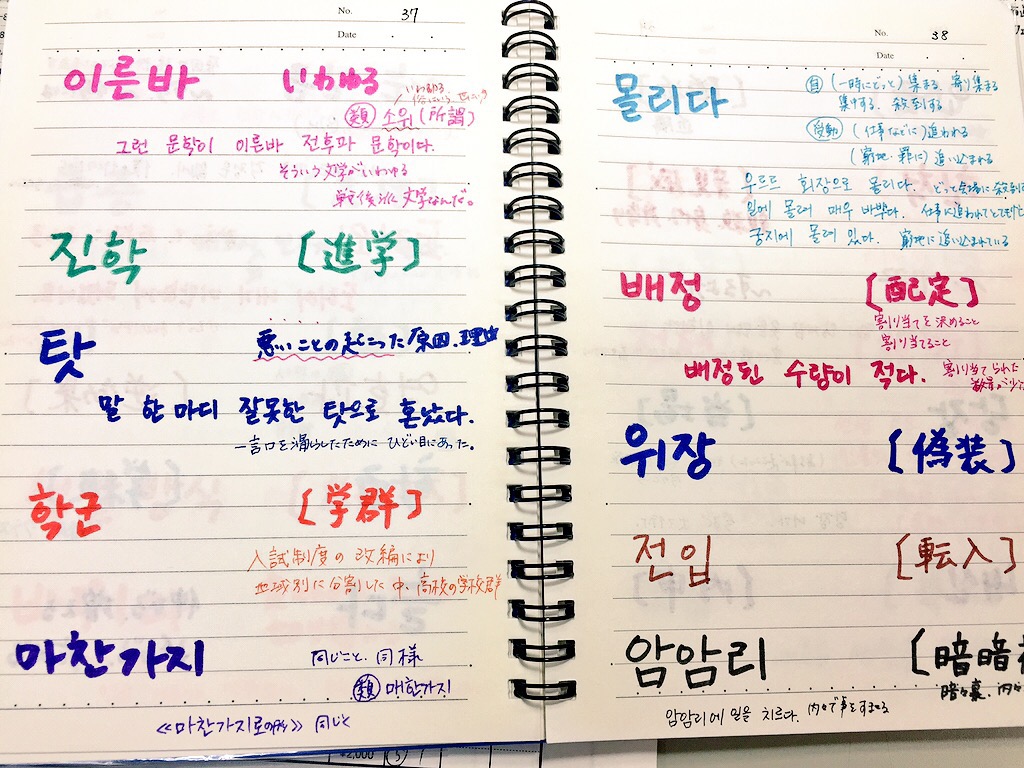 No. 37
Date
이른바 いわゆる
いわゆる
類 소위 (所謂)
그런 문학이 이른바 전후파 문학이다.
そういう文学がいわゆる
戦後派文学なんだ。
진학 [進学]
탓 悪いことの起こった原因、理由
말 한마디 잘못한 탓으로 혼났다.
一言口を滑らしたために ひどい目にあった。
학군 [学群]
入試制度の改編により
地域別に分割した中、高校の学校群
마찬가지 同じこと、同様
類 매한가지
≪마찬가지로の形≫ 同じく
No. 38
Date
몰리다 自 (一時にどっと) 集まる、寄り集まる
集中する、殺到する
受動 (仕事などに) 追われる
(窮地・罪に) 追い込まれる
우르르 회장으로 몰리다. どっと会場に殺到
일에 몰려 매우 바쁘다. 仕事に追われてとても忙
궁지에 몰려 있다. 窮地に追い込まれている
배정 [配定]
割り当てを決めること
割り当てること
배정된 수량이 적다. 割り当てられた
数量が少
위장 [偽装]
전입 [転入]
암암리 [暗暗
暗々裏、内々
암암리에 일을 치르다. 内々で事をすませる
2,000